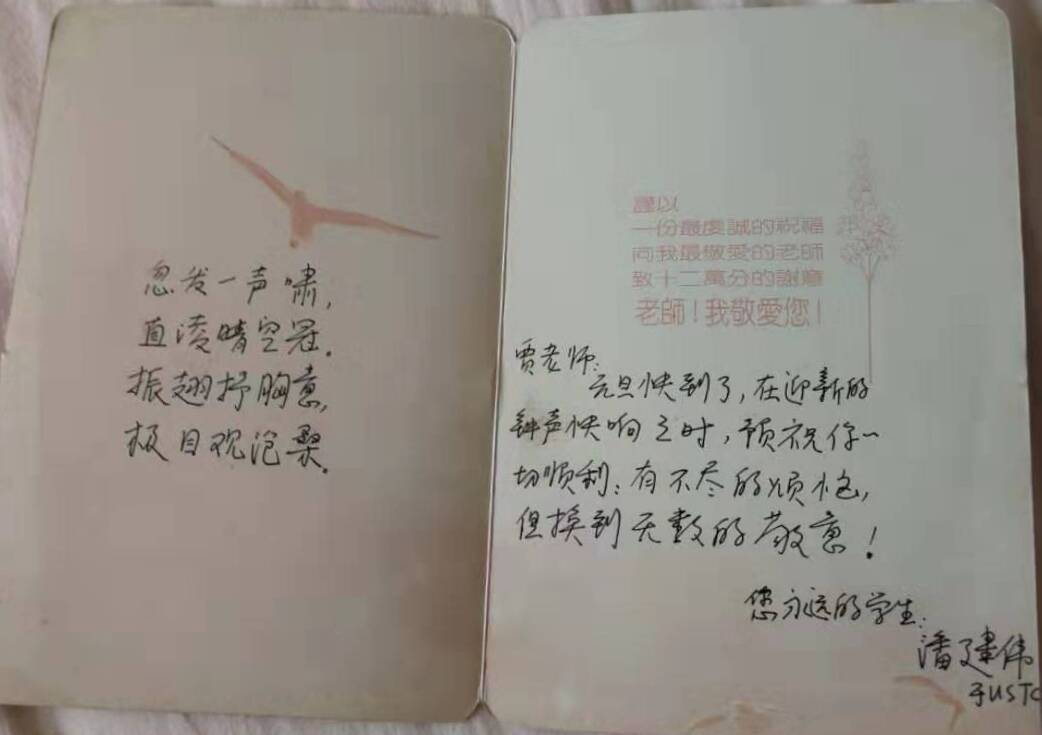 忽发一声啸,
直凌晴空冠.
振翅抒胸意,
极目观沧桑.
謹以
一份最虔誠的祝福
向我最敬愛的老師
致十二萬分的謝意
老師！我敬愛您！
贾老师:
元旦快到了,在迎新的
钟声快响之时,预祝你一
切顺利;有不尽的烦恼,
但换到无数的敬意!
您永远的学生:
潘建伟
于USTC